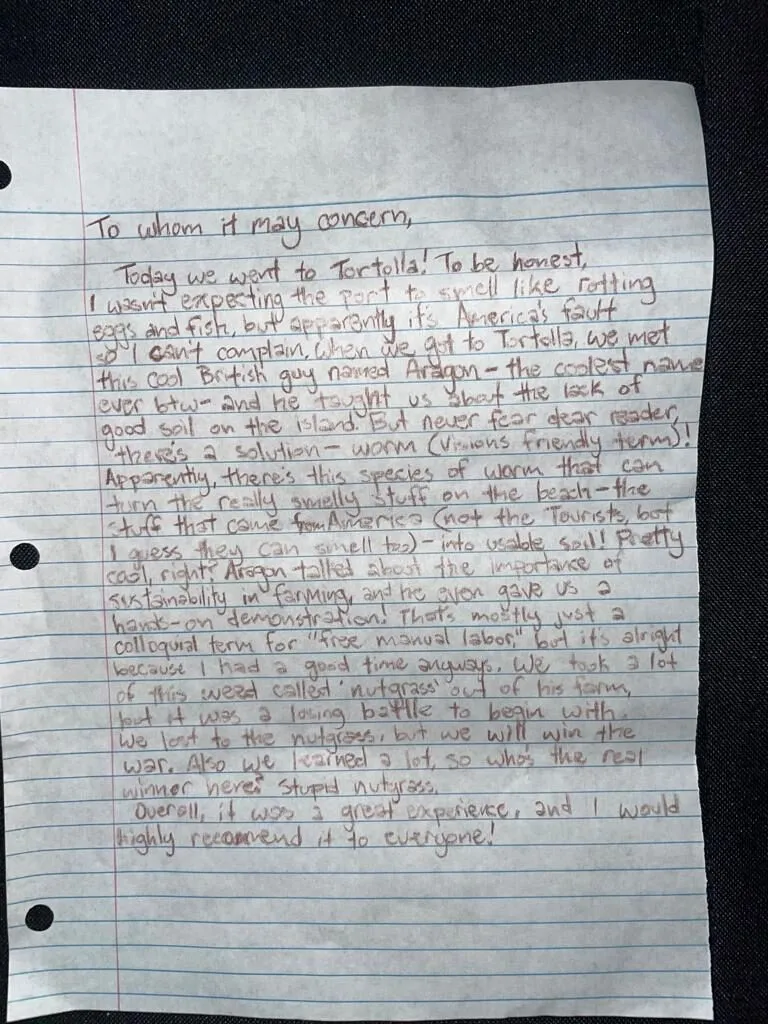 To whom it may concern,
Today we went to Tortolla! To be honest,
I wasn't expecting the port to smell like rotting
eggs and fish, but apparently it's America's fault
so I can't complain. When we got to Tortolla, we met
this cool British guy named Aragon - the coolest name
ever btw - and he taught us about the lack of
good soil on the island. But never fear dear reader,
there's a solution - worm (Visions friendly term)!
Apparently, there's this species of worm that can
turn the really smelly stuff on the beach - the
stuff that came from America (not the Tourists, but
I guess they can smell too) - into usable soil! Pretty
cool, right? Aragon talked about the importance of
sustainability in farming, and he even gave us a
hands-on demonstration! That's mostly just a
colloquial term for "free manual labor," but it's alright
because I had a good time anyways. We took a lot
of this weed called 'nutgrass' out of his farm,
but it was a losing battle to begin with.
We lost to the nutgrass, but we will win the
war. Also we learned a lot, so who's the real
winner here? Stupid nutgrass.
Overall, it was a great experience, and I would
highly recommend it to everyone!